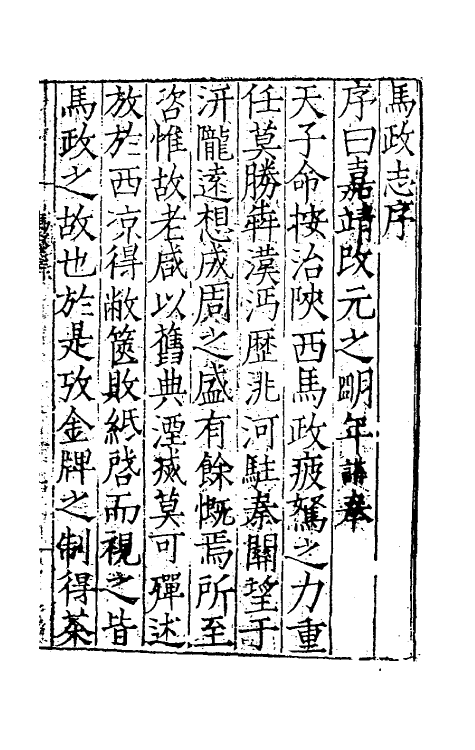 馬政志序
序曰嘉靖改元之明年講奉
天子命按治陝西馬政疲駑之力重
任莫勝犇漠沔歷洮河駐秦關望于
汧隴遠想成周之盛有餘慨焉所至
咨惟故老咸以舊典湮滅莫可殫述
放於西凉得敝篋敗紙啓而視之皆
馬政之故也於是攷金牌之制得茶